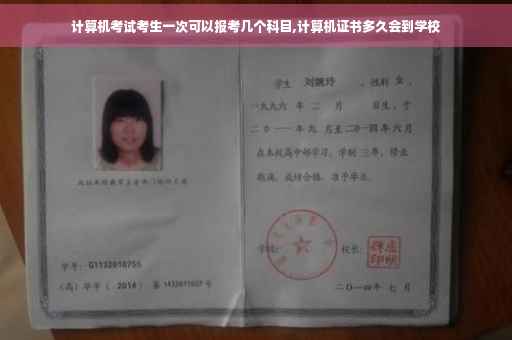 计算机考试考生一次可以报考几个科目,计算机证书多久会到学校
学生 刘婉玲 ，性别 女 ，
一九九六 年 二 月 日生，于
二〇一一 年 九 月至 二〇一四 年 六 月
在本校高中部学习，学制 三年，修业
期满，成绩合格，准予毕业。
学号：G1132010755
（高）毕字（ 2014 ）第 1432011027 号
学校：
校长：
二〇一四年 七 月